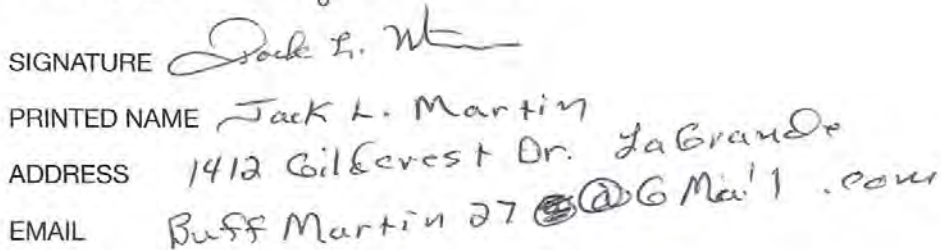 SIGNATURE Jack L. M
PRINTED NAME Jack L. Martin
ADDRESS 1412 Gilcrest Dr. LaGrande
EMAIL Buff Martin 27 @ G Mail .com